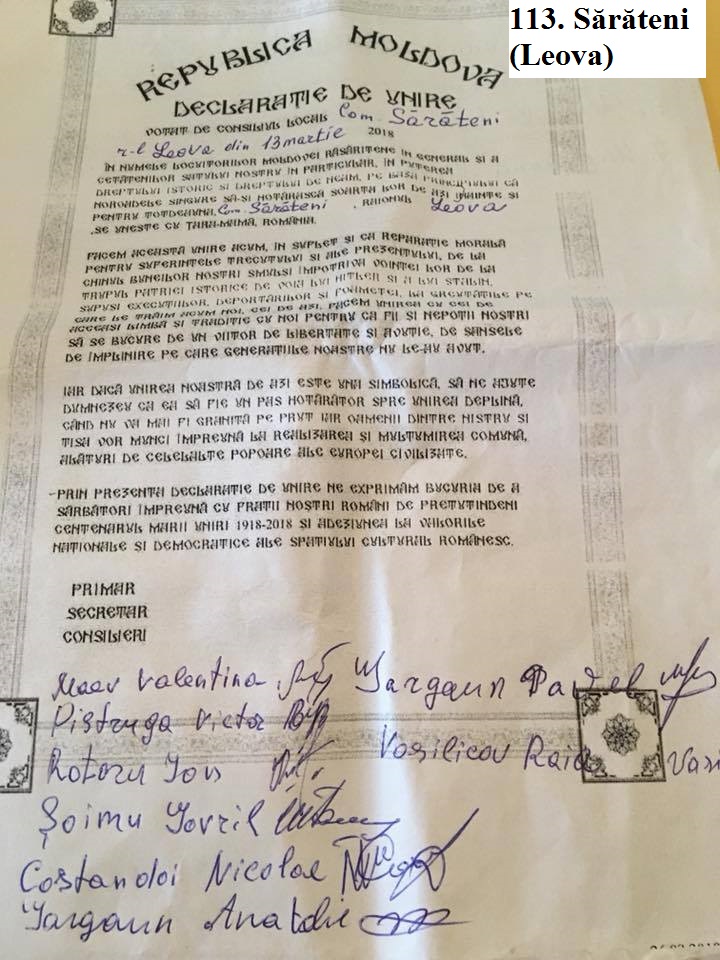 113. Sărăteni
(Leova)
REPUBLICA MOLDOVA
DECLARATIE DE UNIRE
VOTAT DE CONSILIUL LOCAL Com. Sărăteni
r-l Leova din 13 martie 2018
ÎN NUMELE LOCUITORILOR MOLDOVEI RĂSĂRITENE ÎN GENERAL ȘI A
CETĂTENILOR SATULUI NOSTRU ÎN PARTICULAR, ÎN PUTEREA
DREPTULUI ISTORIC SI DREPTULUI DE NEAM, PE BAZA PRINCIPIULUI CĂ
NOROADELE SINGURE SĂ-SI HOTĂRASCĂ SOARTA LOR DE AZI ÎNAINTE SI
PENTRU TOTDEAUNA, Com. Sărăteni, RAIONUL Leova
,SE UNESTE CU TARA-MAMA, ROMÂNIA.
FACEM ACEASTĂ UNIRE ACUM, ÎN SUFLET SI CA REPARATIE MORALĂ
PENTRU SUFERINTELE TRECUTULUI SI ALE PREZENTULUI, DE LA
CHINUL BUNEILOR NOSTRI SMULSI ÎMPOTRIVA VOINTEI LOR DE LA
TRUPUL PATRIEI ISTORICE DE VOIA LUI HITLER SI A LUI STALIN,
SUPUSI EXECUTIILOR, DEPORTĂRILOR SI FOAMETEI, LA GREUTĂTILE PE
CARE LE TRĂIM ACUM NOI, CEI DE AZI. FACEM UNIREA CU CEI DE
ACEEASI LIMBĂ SI TRADITIE CU NOI PENTRU CA FII SI NEPOTII NOSTRI
SĂ SE BUCURE DE UN VIITOR DE LIBERTATE SI AVUTIE, DE SANSELE
DE ÎMPLINIRE PE CARE GENERATIILE NOASTRE NU LE-AU AVUT.
IAR DACĂ UNIREA NOASTRĂ DE AZI ESTE UNA SIMBOLICĂ, SĂ NE AJUTE
DUMNEZEU CA EA SĂ FIE UN PAS HOTĂRÂTOR SPRE UNIREA DEPLINĂ,
CÂND NU VA MAI FI GRANITĂ PE PRUT IAR OAMENII DINTRE NISTRU SI
TISA VOR MUNCI ÎMPREUNĂ LA REALIZAREA ȘI MULTUMIREA COMUNĂ,
ALĂTURI DE CELELALTE POPOARE ALE EUROPEI CIVILIZATE.
-PRIN PREZENTA DECLARATIE DE UNIRE NE EXPRIMĂM BUCURIA DE A
SĂRBĂTORI ÎMPREUNĂ CU FRATII NOSTRI ROMÂNI DE PRETUTINDENI
CENTENARUL MARII UNIRI 1918-2018 SI ADEZIUNEA LA VALORILE
NATIONALE SI DEMOCRATICE ALE SPATIULUI CULTURAL ROMÂNESC.
PRIMAR
SECRETAR
CONSILIERI
Valentina
Iargaun Pavel
Distruga Victor
Vasilicov Raisa
Rotoru Ion
Șoimu Iovril
Costandoi Nicolae
Iargaun Anatolie